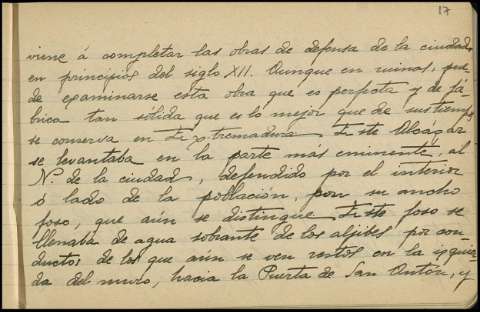 17
viene á completar las obras de defensa de la ciudad
en principios del siglo XII. Aunque en ruinas, pue-
de examinarse esta obra que es perfecta y de fá-
brica tan sólida que es lo mejor que de su tiempo
se conserva en Extremadura. Este Alcazar
se levantaba en la parte más eminente, al
N. de la ciudad, defendido por el interior
ó lado de la población, por su ancho
foso, que aún se distingue. Este foso se
llenaba de agua sobrante de los aljibes por con-
ductos de los que aún se ven restos en la izquier-
da del muro, hacia la Puerta de San Antón, y